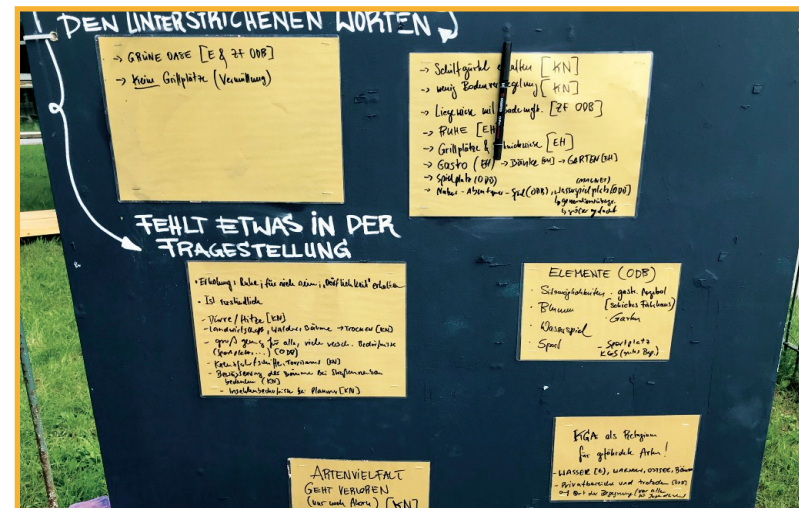 DEN UNTERSTRICHENEN WORTEN
→ GRÜNE OASE [E & ZF ODB]
→ Keine Grillplätze (Vermüllung)
→ Schilfgürtel erhalten [KN]
→ wenig Bodenversiegelung [KN]
→ Liegewiese mit [ZF ODB]
→ RUHE [EH]
→ Grillplätze & [EH]
→ GASTO (EH) → Bänke → GARTEN [EH]
→ Spielplatz (ODB)
→ Natur - Abenteuer - Spiel (ODB), Wasserspielplatz (ODB)
größer gedacht
FEHLT ETWAS IN DER
FRAGESTELLUNG
• Erholung, Ruhe, für sich sein, "Dörflichkeit" erhalten
• Ist verständlich
- Dürre/Hitze [KN]
- Landwirtschaft, Wälder, Bäume → Trocken [KN]
- groß genug für alle, viele versch. Bedürfnisse
(Sportplatz...) (ODB)
- Kreuzfahrtschiffe, Tourismus [KN]
- Bewässerung der Bäume bei
bedenken (KN)
- bei Planung [KN]
ELEMENTE (ODB)
· Sitzmöglichkeiten · gastr. Angebot
· Blumen [schickes Fährhaus]
· Garten
· Wasserspiel
· Sport - Sportplatz
KGS (gutes Bsp.)
KGA als Refugium
für gefährdete Arten!
- WASSER [E], Bäume
- Privatbereiche und trotzdem
Ort der Begegnung (vor allem
ARTENVIELFALT
GEHT VERLOREN
(nur noch Ahorn) [KN]